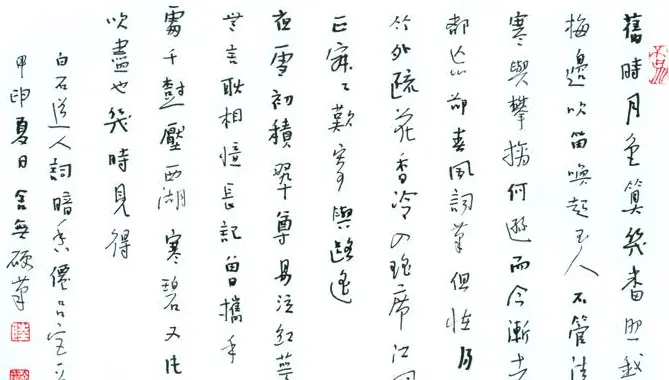 舊時月色算幾番照我
梅邊吹笛喚起玉人不管清
寒與攀摘何遜而今漸老
都忘卻春風詞筆但怪得
竹外疏花香冷入瑤席江國
正寂寂歎寄與路遙
夜雪初積翠尊易泣紅萼
無言耿相憶長記曾攜手
處千樹壓西湖寒碧又片
吹盡也幾時見得
白石道人詞暗香僊呂宮
甲申夏日舍無硬筆